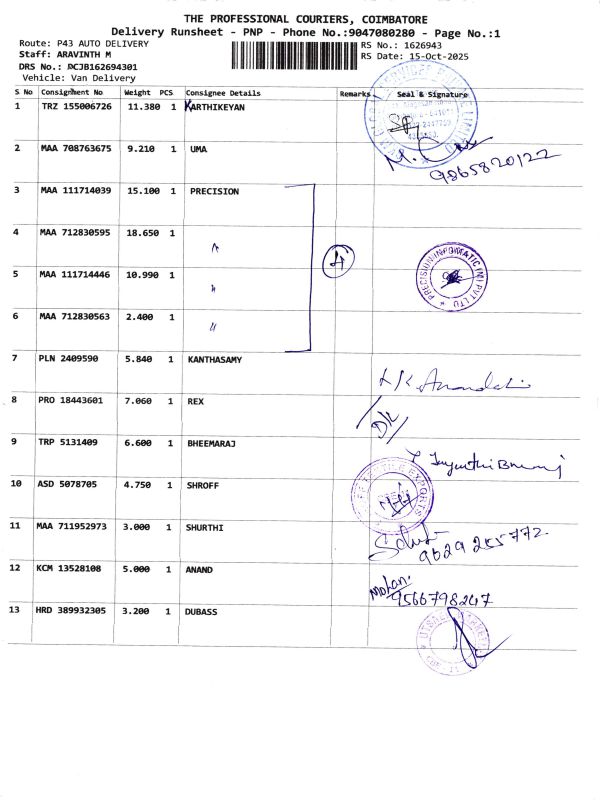 THE PROFESSIONAL COURIERS, COIMBATORE
Delivery Runsheet - PNP - Phone No.:9047080280 - Page No.:1
Route: P43 AUTO DELIVERY
RS No.: 1626943
Staff: ARAVINTH M
RS Date: 15-Oct-2025
DRS No.: RCJB162694301
Vehicle: Van Delivery
S No Consignment No Weight PCS Consignee Details Remarks Seal & Signature
1 TRZ 155006726 11.380 1 KARTHIKEYAN
2 MAA 708763675 9.210 1 UMA
9865820122
3 MAA 111714039 15.100 1 PRECISION
4 MAA 712830595 18.650 1 "
4
5 MAA 111714446 10.990 1 "
PRECISION INFOMATIC (M) PVT LTD
6 MAA 712830563 2.400 1 "
7 PLN 2409590 5.840 1 KANTHASAMY
8 PRO 18443601 7.060 1 REX
9 TRP 5131409 6.600 1 BHEEMARAJ
10 ASD 5078705 4.750 1 SHROFF
11 MAA 711952973 3.000 1 SHURTHI
9629285772
12 KCM 13528108 5.000 1 ANAND
Mohan.
9566798247
13 HRD 389932305 3.200 1 DUBASS